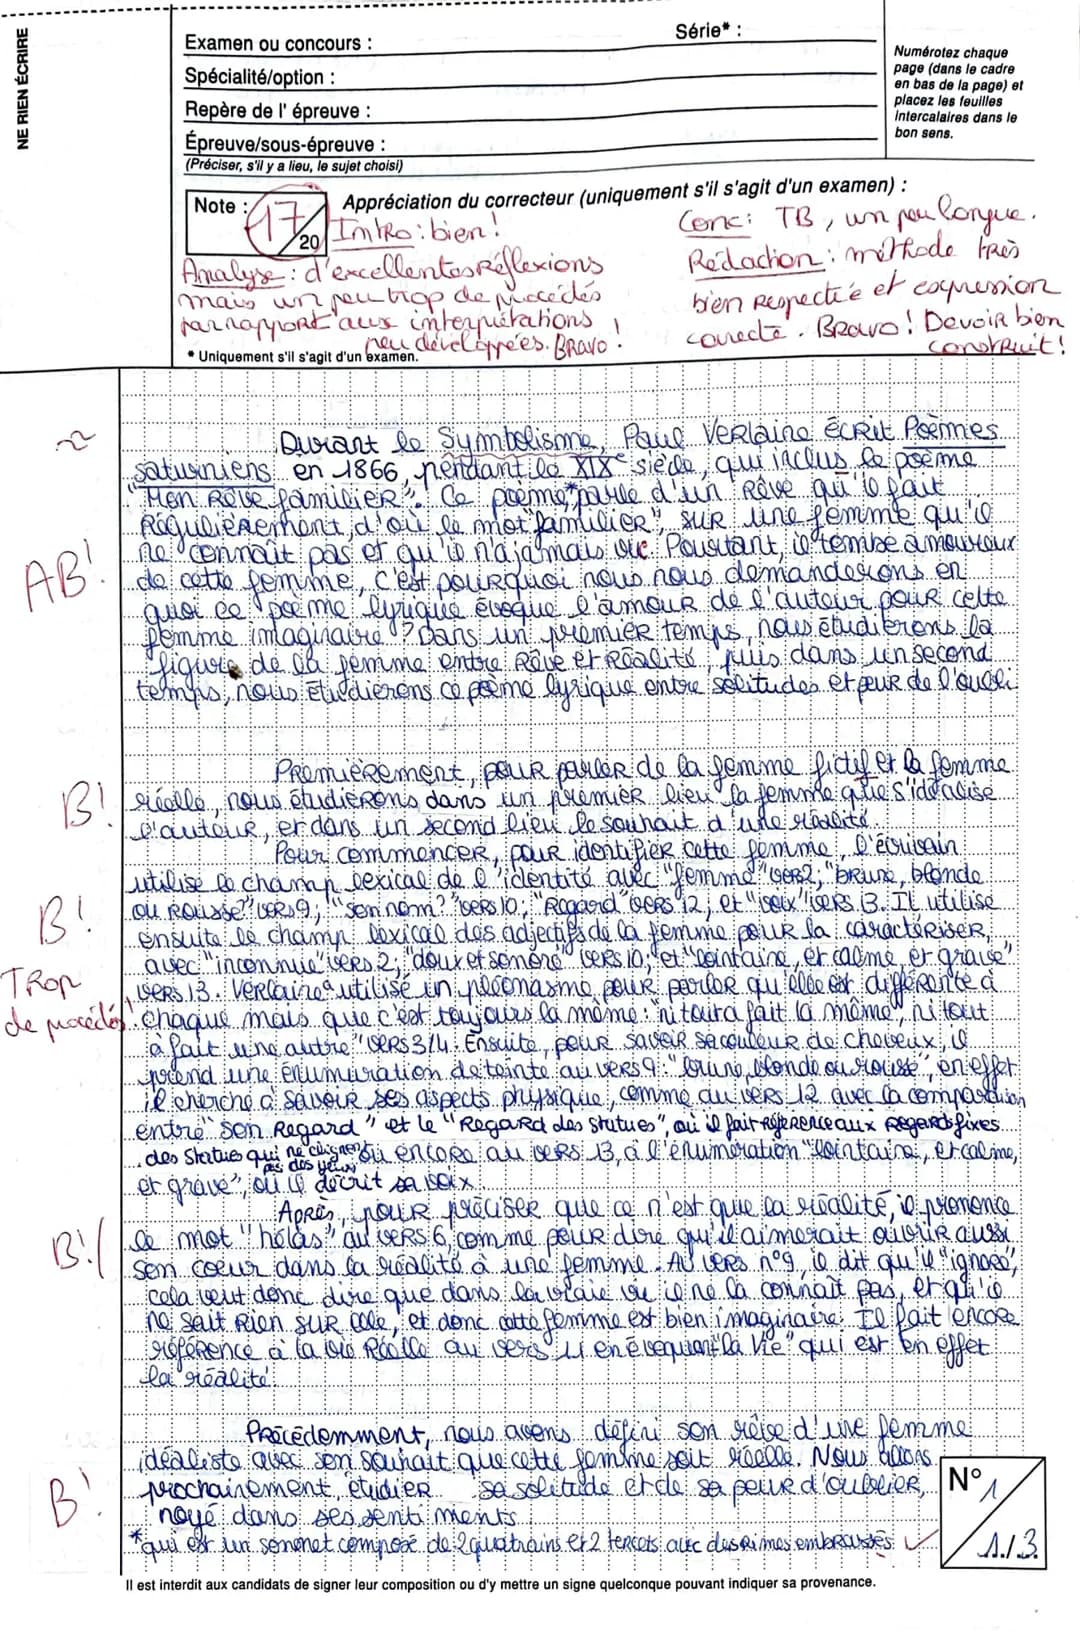 NE RIEN ÉCRIRE
Examen ou concours :
Série* :
Spécialité/option :
Repère de l' épreuve :
Épreuve/sous-épreuve :
(Préciser, s'il y a lieu, le sujet choisi)
Numérotez chaque
page (dans le cadre
en bas de la page) et
placez les feuilles
intercalaires dans le
bon sens.
Note :
17/20
Appréciation du correcteur (uniquement s'il s'agit d'un examen) :
Intro : bien !
Analyse : d'excellentes réflexions
mais un peu trop de procédés
par rapport aux interprétations
peu développées. BRAVO !
Conc : TB, un peu longue.
Rédaction : méthode très
bien respectée et expression
correcte. Bravo ! Devoir bien
construit !
* Uniquement s'il s'agit d'un examen.
Durant le Symbolisme, Paul Verlaine écrit Poèmes
saturniens en 1866, pendant le XIXe siècle, qui inclus le poème
"Mon Rêve familier". Ce poème* parle d'un rêve qu'il fait
régulièrement, d'où le mot "familier", sur une femme qu'il
ne connaît pas et qu'il n'a jamais vue. Pourtant, il tombe amoureux
AB !
de cette femme, c'est pourquoi nous nous demanderons en
quoi ce poème lyrique évoque l'amour de l'auteur pour cette
femme imaginaire ? Dans un premier temps, nous étudierons la
figure de la femme entre Rêve et Réalité, puis dans un second
temps, nous étudierons ce poème lyrique entre solitudes et peur de l'oubli.
Premièrement, pour parler de la femme fictif et la femme
B !
réelle, nous étudierons dans un premier lieu la femme que s'idéalise
l'auteur, et dans un second lieu le souhait d'une réalité.
Pour commencer, pour identifier cette femme, l'écrivain
utilise le champ lexical de l'identité avec "femme" vers 2; "brune, blonde
B !
ou rousse?" vers 9; "son nom?" vers 10; "Regard" vers 12; et "voix" vers 13. Il utilise
ensuite le champ lexical des adjectifs de la femme pour la caractériser,
avec "inconnue" vers 2, "doux et sonore" vers 10, et "lointaine, et calme, et grave"
Trop
de procédés
vers 13. Verlaine utilise un pléonasme pour parler qu'elle est différente à
chaque mais que c'est toujours la même : "ni tout à fait la même, ni tout
à fait une autre" vers 3/4. Ensuite, pour savoir sa couleur de cheveux, il
prend une énumuration de teinte au vers 9 : "brune, blonde ou rousse", en effet
il cherche à savoir ses aspects physique, comme au vers 12 avec la comparaison
entre "son Regard" et le "Regard des statues", où il fait référence aux regards fixes
des statues qui ne clignent pas des yeux où encore au vers 13, à l'énumération "lointaine, et calme,
et grave", où il décrit sa voix.
Après, pour préciser que ce n'est que la réalité, il prononce
B !
le mot "hélas" au vers 6, comme pour dire qu'il aimerait ouvrir aussi
son coeur dans la réalité à une femme. Au vers n°9, il dit qu'il "ignore",
cela veut donc dire que dans la vraie vie il ne la connaît pas, et qu'il
ne sait rien sur elle, et donc cette femme est bien imaginaire. Il fait encore
référence à la vie Réelle au vers 11 en évoquant "la Vie" qui est en effet
la réalité.
Précédemment, nous avons défini son rêve d'une femme
idéaliste avec son souhait que cette femme soit réelle. Nous allons
B !
prochainement, étudier sa solitude et de sa peur d'oublier,
noyé dans ses sentiments.
*qui est un sononet composé de 2 quatrains et 2 tercets avec des rimes embrassés.
N° 1
1/3
Il est interdit aux candidats de signer leur composition ou d'y mettre un signe quelconque pouvant indiquer sa provenance.